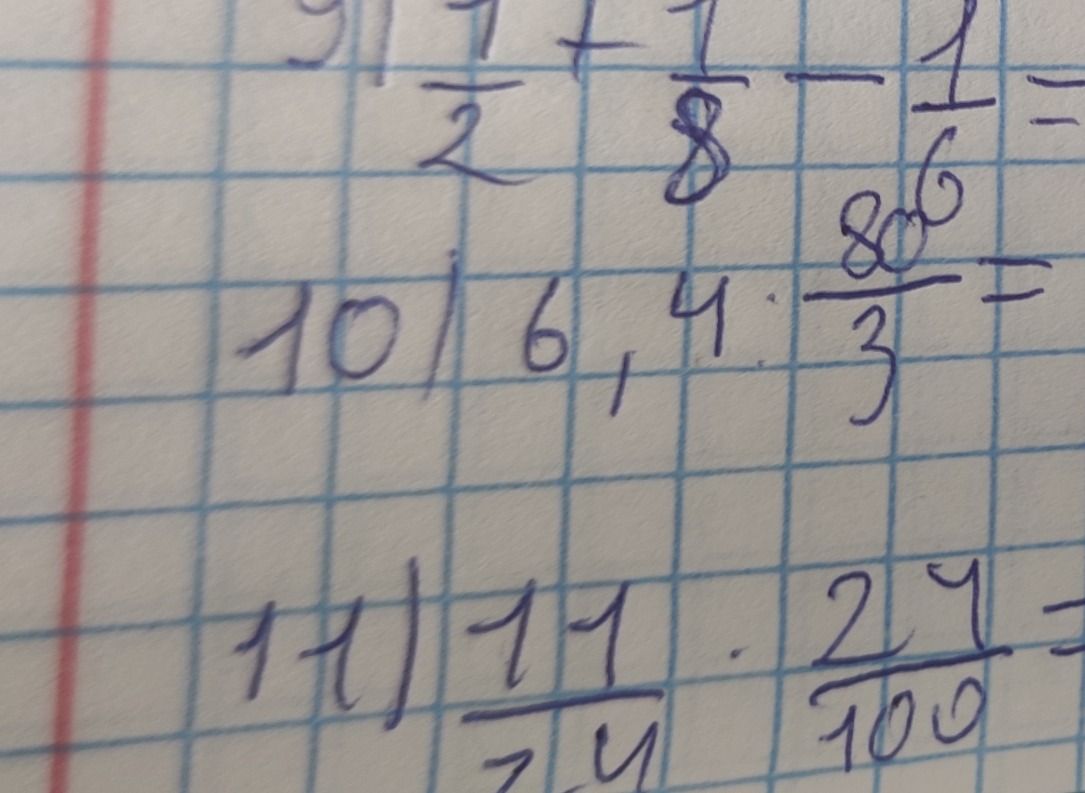 9) 1/2 + 1/8 - 1/6 =
10) 6,4 : 80/3 =
11) 11/24 · 24/100 =